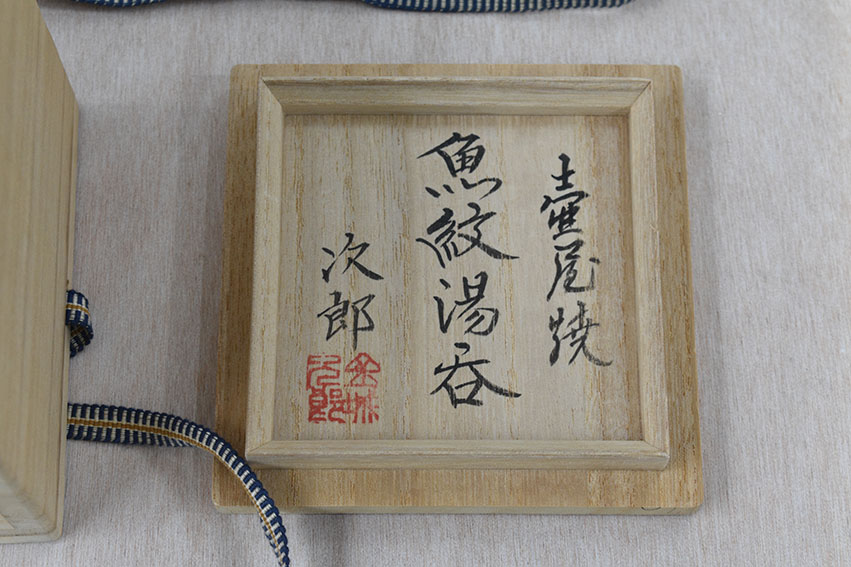 壷屋焼
魚紋湯呑
次郎
金城次郎